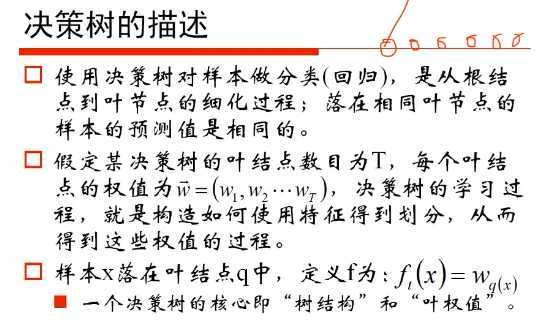 决策树的描述
使用决策树对样本做分类(回归)，是从根结
点到叶节点的细化过程；落在相同叶节点的
样本的预测值是相同的。
假定某决策树的叶结点数目为T，每个叶结
点的权值为w⃗=(w₁,w₂⋯w_T)，决策树的学习过
程，就是构造如何使用特征得到划分，从而
得到这些权值的过程。
样本x落在叶结点q中，定义f为：f_t(x)=w_q(x)
一个决策树的核心即“树结构”和“叶权值”。